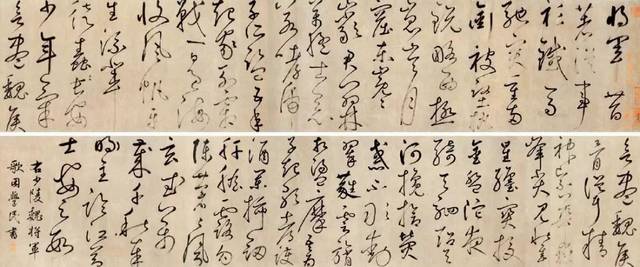 將軍昔
著從事
衫鐵馬
馳突重兩
銜被堅執
銳略西極
崑崙月
窟東嶄巖
君門羽林
萬猛士惡
若哮虎
子所監五年
起家列霜
戟一日過海
收風帆平
生流輩
徒蠢蠢長安
少年氣
欲盡魏侯
欲盡魏侯
骨聳精
爽緊華嶽
峯尖見秋隼
星躔寶校
金盤陀夜
騎天駟超天
河欃槍熒
惑不敢動
翠蕤雲旓
相蕩摩吾為
子起歌都護
酒闌插劍
肝膽露鉤
陳蒼蒼風
玄武萬
歲千秋奉
明主臨江節
士安足數
右少陵魏將軍
歌 書